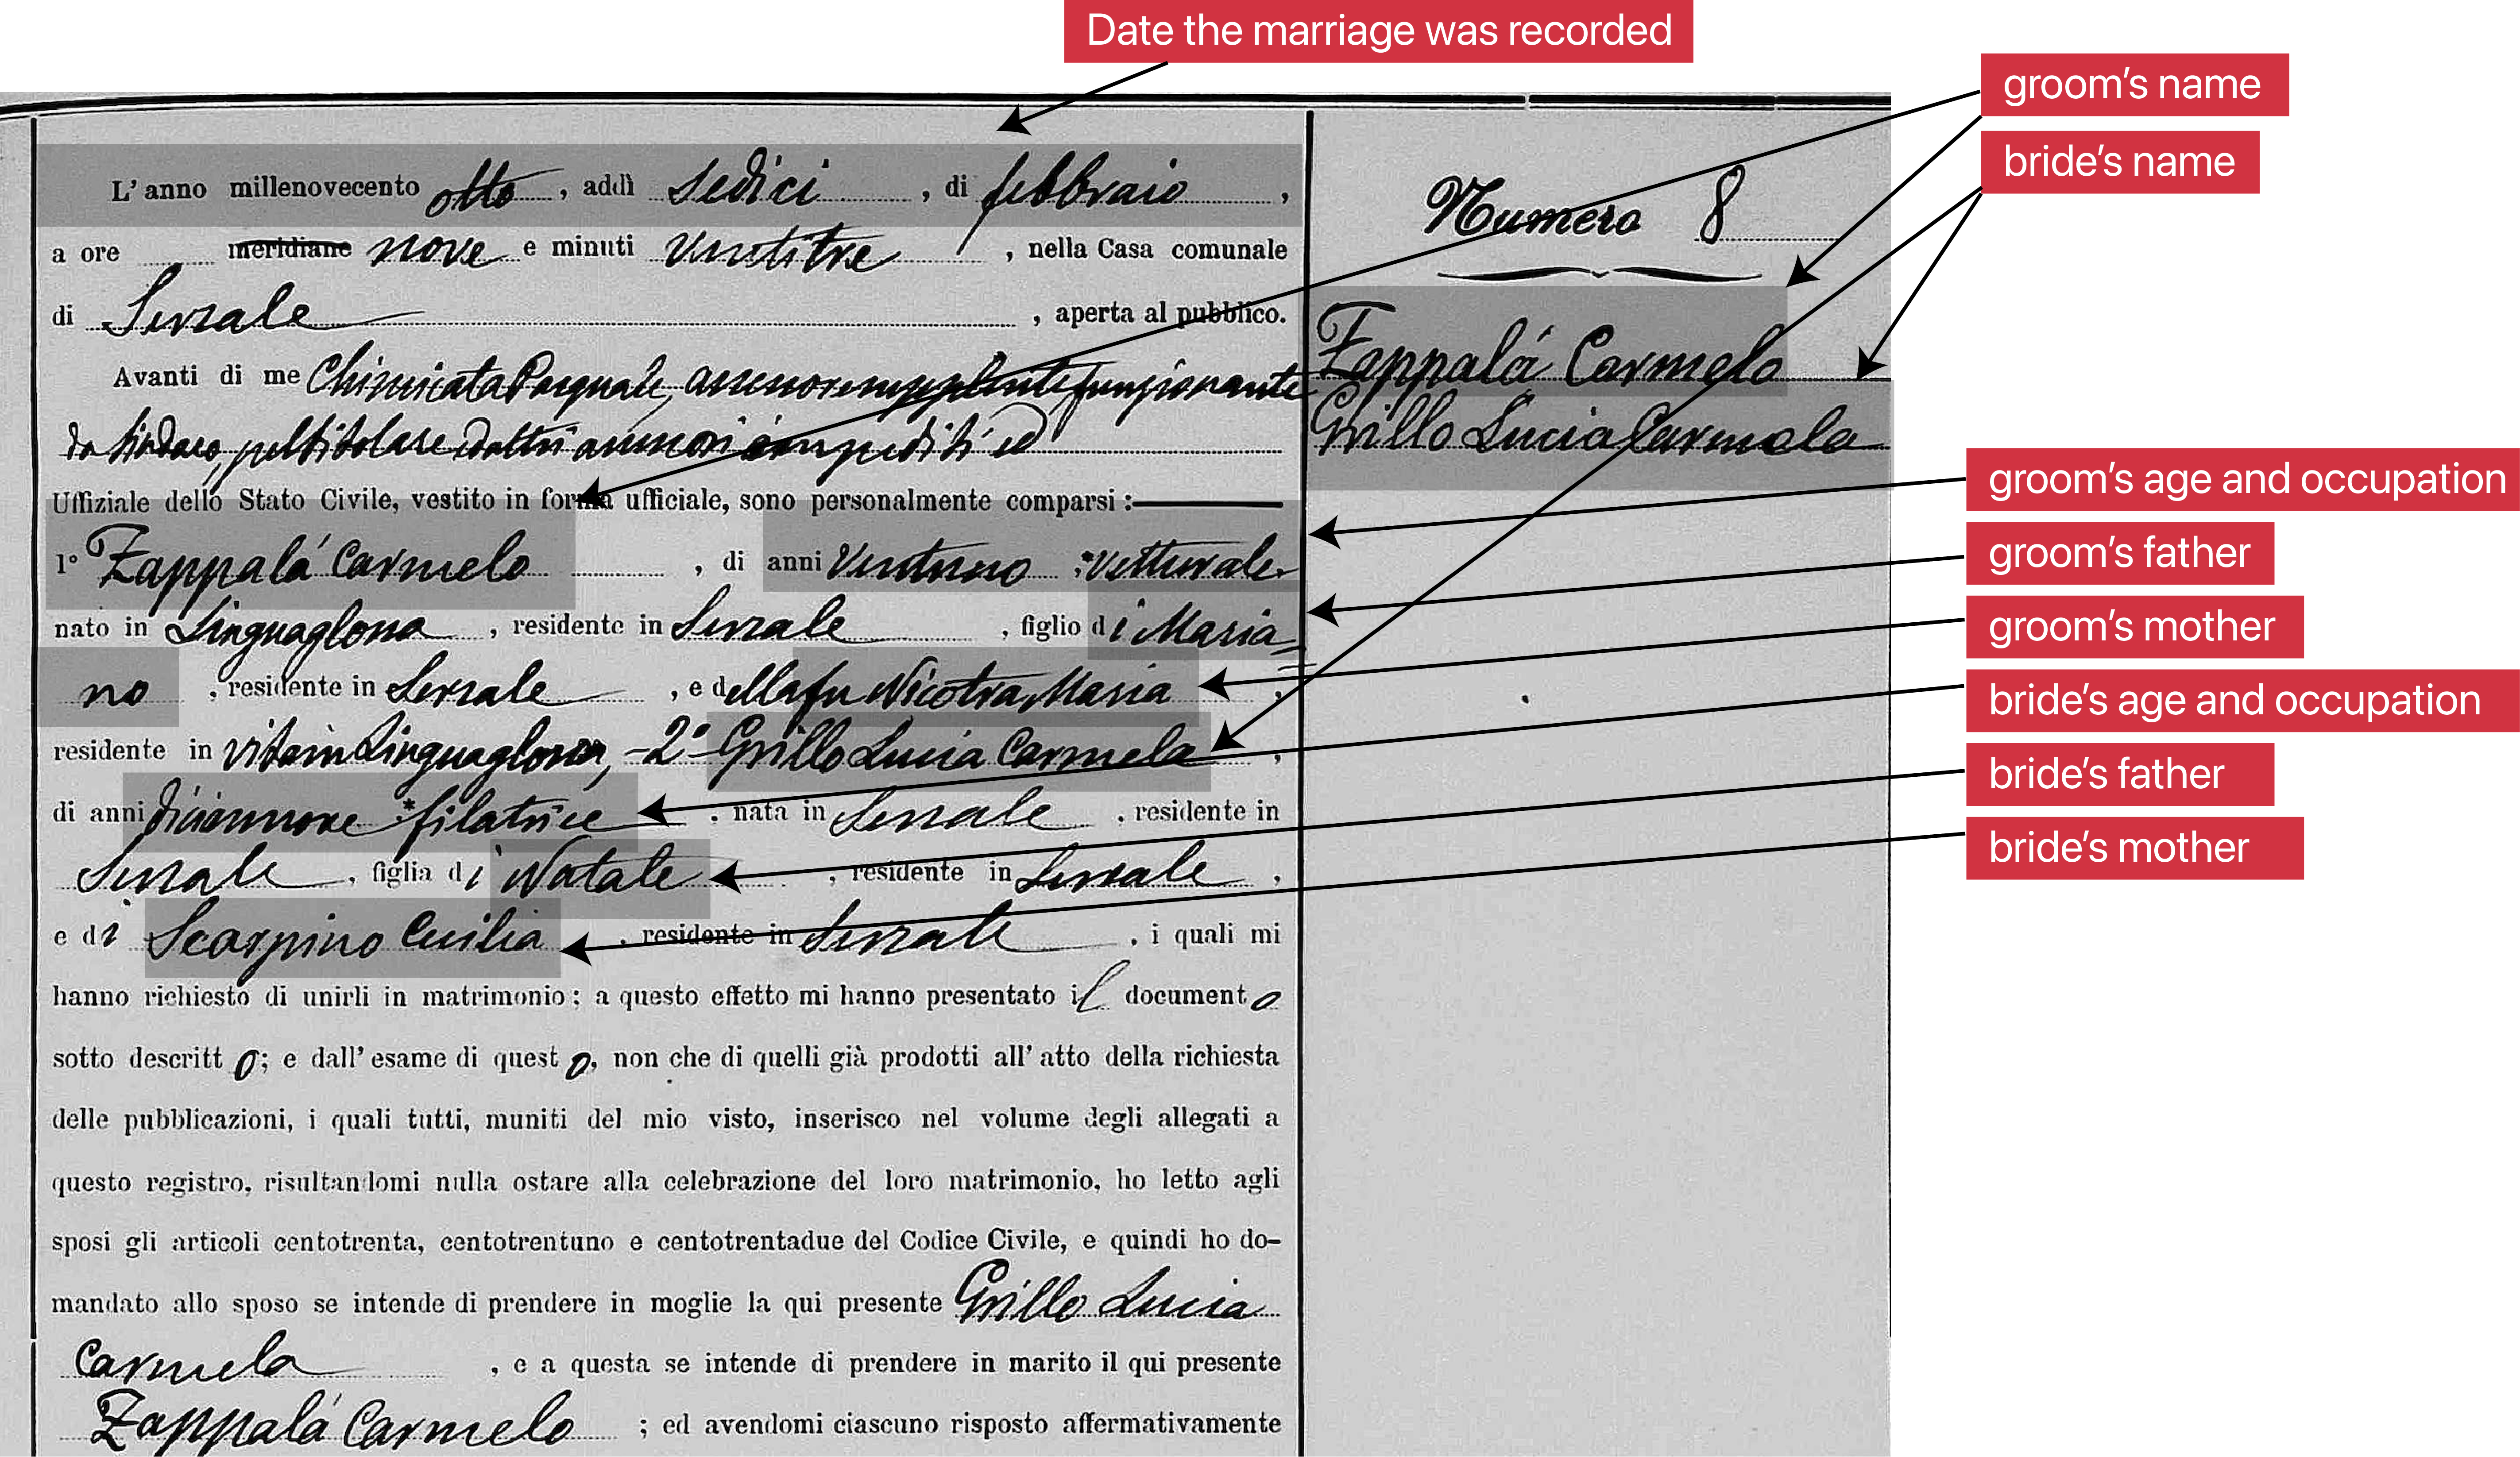 Date the marriage was recorded
groom's name
bride's name
L'anno millenovecento otto, addì sedici, di febbraio,
a ore meridiane nove e minuti ventitre, nella Casa comunale
di Sersale, aperta al pubblico.
Avanti di me Pasquale, funzionante
da sindaco, impediti ed
Uffiziale dello Stato Civile, vestito in forma ufficiale, sono personalmente comparsi:
1° Zappalá Carmelo, di anni Ventuno *Vetturale
nato in Linguaglossa, residente in Sersale, figlio di Maria=
no, residente in Sersale, e della fu Nicotra Maria,
residente in vita in Linguaglossa, -2° Grillo Lucia Carmela,
di anni diciannove *filatrice, nata in Sersale, residente in
Sersale, figlia di Natale, residente in Sersale,
e di Scarpino Cecilia, residente in Sersale, i quali mi
hanno richiesto di unirli in matrimonio; a questo effetto mi hanno presentato il documento
sotto descritto; e dall'esame di questo, non che di quelli già prodotti all'atto della richiesta
delle pubblicazioni, i quali tutti, muniti del mio visto, inserisco nel volume degli allegati a
questo registro, risultandomi nulla ostare alla celebrazione del loro matrimonio, ho letto agli
sposi gli articoli centotrenta, centotrentuno e centotrentadue del Codice Civile, e quindi ho do-
mandato allo sposo se intende di prendere in moglie la qui presente Grillo Lucia
Carmela, e a questa se intende di prendere in marito il qui presente
Zappalá Carmelo; ed avendomi ciascuno risposto affermativamente
Numero 8
Zappalá Carmelo
Grillo Lucia Carmela
groom's age and occupation
groom's father
groom's mother
bride's age and occupation
bride's father
bride's mother